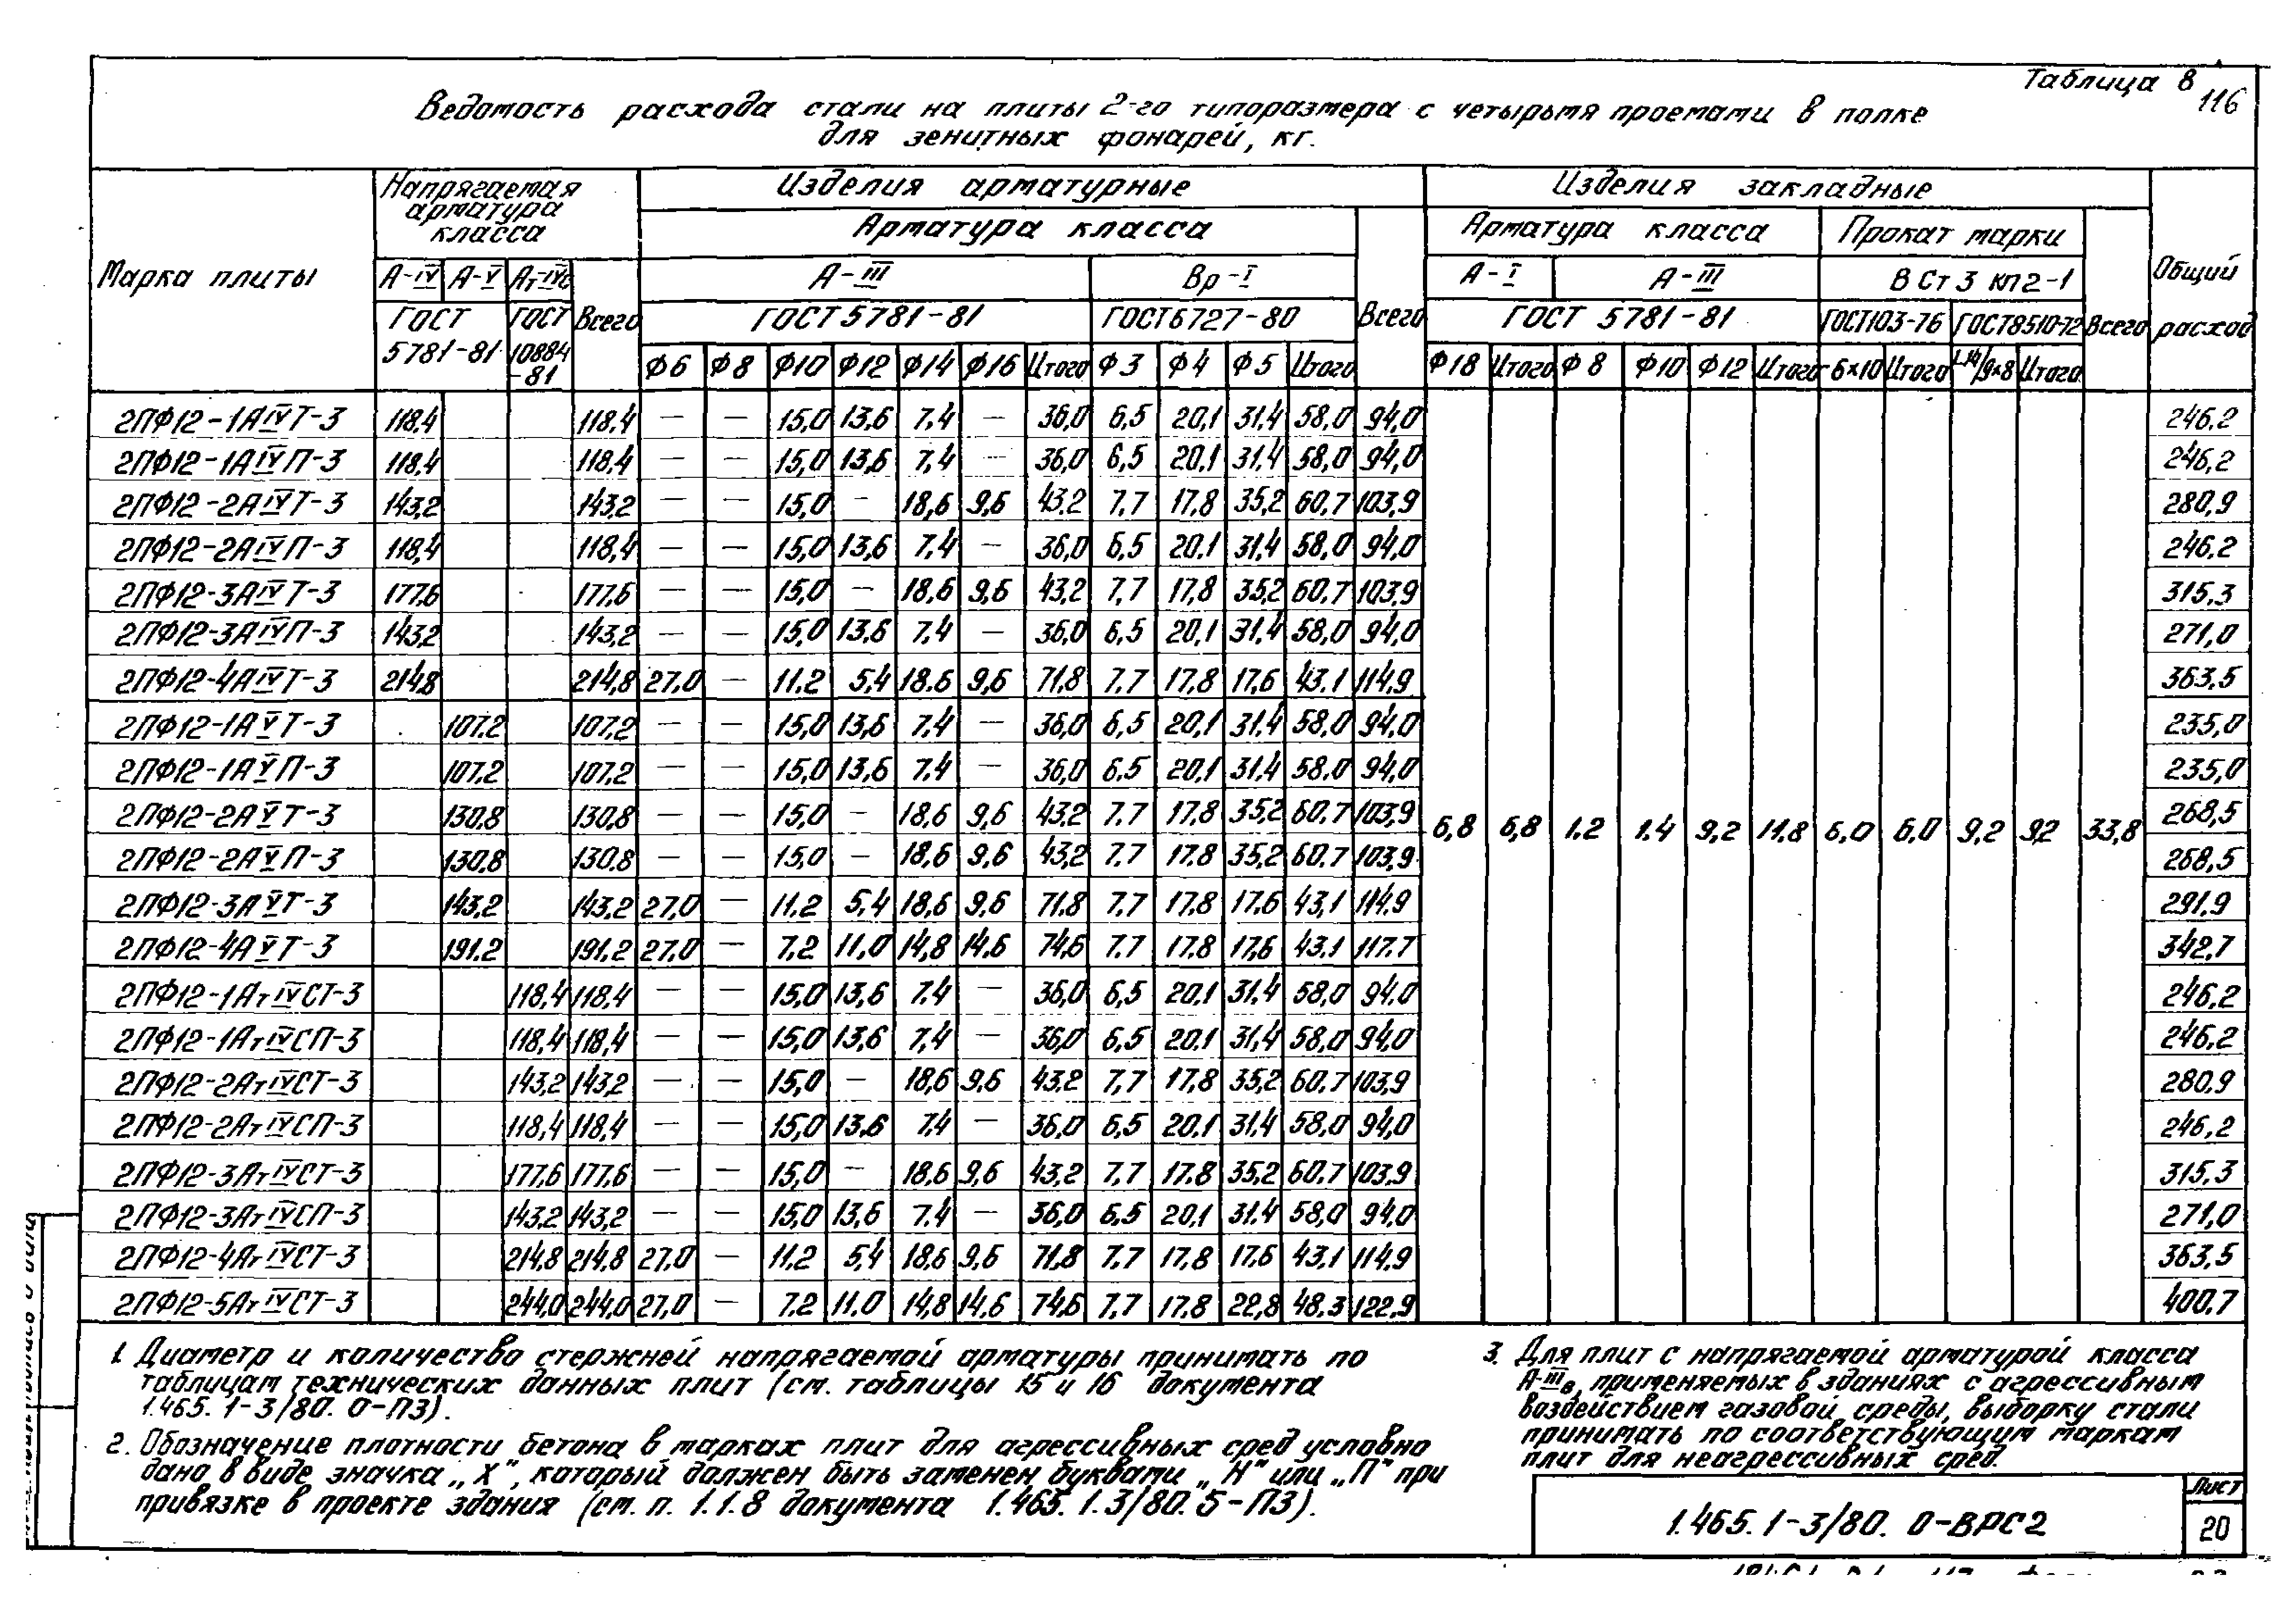 Таблица 8
116
Ведомость расхода стали на плиты 2-го типоразмера с четырьмя проемами в полке
для зенитных фонарей, кг.
Марка плиты | Напрягаемая арматура класса | Изделия арматурные | Изделия закладные | Общий расход
Арматура класса | Всего | Арматура класса | Прокат марки | Всего
А-IV | А-V | Ат-IVс | Всего | А-III | Вр-I | А-I | А-III | ВСт3 кп2-1
ГОСТ 5781-81 | ГОСТ 10884-81 | ГОСТ 5781-81 | ГОСТ 6727-80 | ГОСТ 5781-81 | ГОСТ103-76 | ГОСТ8510-72
Ф6 | Ф8 | Ф10 | Ф12 | Ф14 | Ф16 | Итого | Ф3 | Ф4 | Ф5 | Итого | Ф18 | Итого | Ф8 | Ф10 | Ф12 | Итого | -6×10 | Итого | Итого
2ПФ12-1АIVТ-3 118,4 118,4 — — 15,0 13,6 7,4 — 36,0 6,5 20,1 31,4 58,0 94,0 246,2
2ПФ12-1АIVП-3 118,4 118,4 — — 15,0 13,6 7,4 — 36,0 6,5 20,1 31,4 58,0 94,0 246,2
2ПФ12-2АIVТ-3 143,2 143,2 — — 15,0 — 18,6 9,6 43,2 7,7 17,8 35,2 60,7 103,9 280,9
2ПФ12-2АIVП-3 118,4 118,4 — — 15,0 13,6 7,4 — 36,0 6,5 20,1 31,4 58,0 94,0 246,2
2ПФ12-3АIVТ-3 177,6 177,6 — — 15,0 — 18,6 9,6 43,2 7,7 17,8 35,2 60,7 103,9 315,3
2ПФ12-3АIVП-3 143,2 143,2 — — 15,0 13,6 7,4 — 36,0 6,5 20,1 31,4 58,0 94,0 271,0
2ПФ12-4АIVТ-3 214,8 214,8 27,0 — 11,2 5,4 18,6 9,6 71,8 7,7 17,8 17,6 43,1 114,9 363,5
2ПФ12-1АVТ-3 107,2 107,2 — — 15,0 13,6 7,4 — 36,0 6,5 20,1 31,4 58,0 94,0 235,0
2ПФ12-1АVП-3 107,2 107,2 — — 15,0 13,6 7,4 — 36,0 6,5 20,1 31,4 58,0 94,0 235,0
2ПФ12-2АVТ-3 130,8 130,8 — — 15,0 — 18,6 9,6 43,2 7,7 17,8 35,2 60,7 103,9 268,5
6,8 6,8 1,2 1,4 9,2 11,8 6,0 6,0 9,2 9,2 33,8
2ПФ12-2АVП-3 130,8 130,8 — — 15,0 — 18,6 9,6 43,2 7,7 17,8 35,2 60,7 103,9 268,5
2ПФ12-3АVТ-3 143,2 143,2 27,0 — 11,2 5,4 18,6 9,6 71,8 7,7 17,8 17,6 43,1 114,9 291,9
2ПФ12-4АVТ-3 191,2 191,2 27,0 — 7,2 11,0 14,8 14,6 74,6 7,7 17,8 17,6 43,1 117,7 342,7
2ПФ12-1АтIVСТ-3 118,4 118,4 — — 15,0 13,6 7,4 — 36,0 6,5 20,1 31,4 58,0 94,0 246,2
2ПФ12-1АтIVСП-3 118,4 118,4 — — 15,0 13,6 7,4 — 36,0 6,5 20,1 31,4 58,0 94,0 246,2
2ПФ12-2АтIVСТ-3 143,2 143,2 — — 15,0 — 18,6 9,6 43,2 7,7 17,8 35,2 60,7 103,9 280,9
2ПФ12-2АтIVСП-3 118,4 118,4 — — 15,0 13,6 7,4 — 36,0 6,5 20,1 31,4 58,0 94,0 246,2
2ПФ12-3АтIVСТ-3 177,6 177,6 — — 15,0 — 18,6 9,6 43,2 7,7 17,8 35,2 60,7 103,9 315,3
2ПФ12-3АтIVСП-3 143,2 143,2 — — 15,0 13,6 7,4 — 36,0 6,5 20,1 31,4 58,0 94,0 271,0
2ПФ12-4АтIVСТ-3 214,8 214,8 27,0 — 11,2 5,4 18,6 9,6 71,8 7,7 17,8 17,6 43,1 114,9 363,5
2ПФ12-5АтIVСТ-3 244,0 244,0 27,0 — 7,2 11,0 14,8 14,6 74,6 7,7 17,8 22,8 48,3 122,9 400,7
1. Диаметр и количество стержней напрягаемой арматуры принимать по
таблицам технических данных плит (см. таблицы 15 и 16 документа
1.465.1-3/80.0-ПЗ).
2. Обозначение плотности бетона в марках плит для агрессивных сред условно
дано в виде значка „Х", который должен быть заменен буквами „Н" или „П" при
привязке в проекте здания (см. п. 1.1.8 документа 1.465.1.3/80.5-ПЗ).
3. Для плит с напрягаемой арматурой класса
А-IIIв, применяемых в зданиях с агрессивным
воздействием газовой среды, выборку стали
принимать по соответствующим маркам
плит для неагрессивных сред.
1.465.1-3/80.0-ВРС2
Лист
20